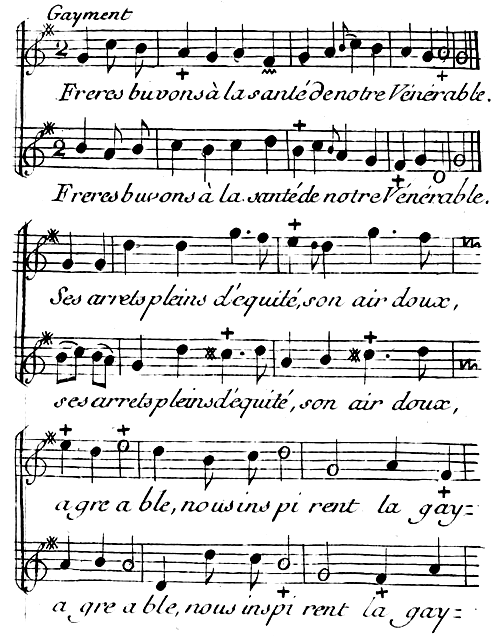 Gayment
2
Freres buvons à la santé de notre Vénérable.
2
Freres buvons à la santé de notre Vénérable.
Ses arrets pleins d'equité, son air doux,
ses arrets pleins d'équité, son air doux,
a gre a ble, nous ins pi rent la gay=
a gre able, nous inspi rent la gay-